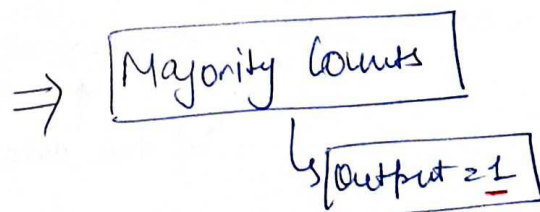 ⇒ Majority Counts
↳ Output = 1